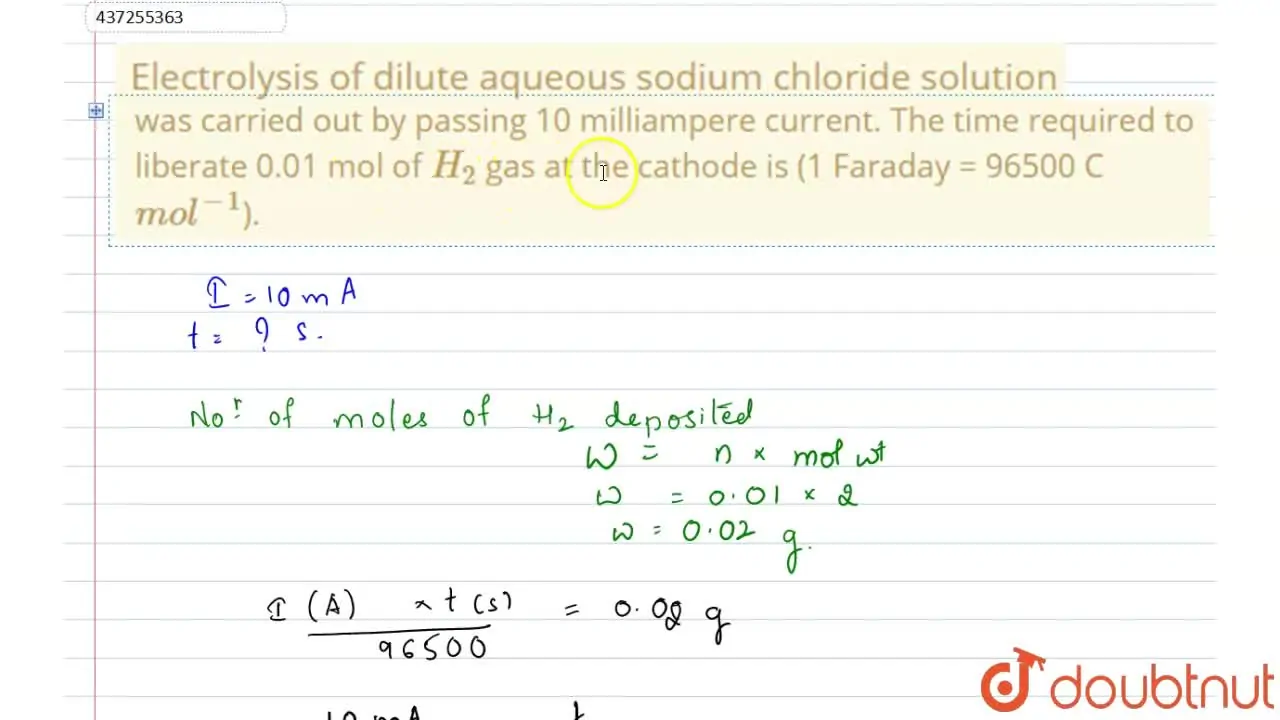 437255363
Electrolysis of dilute aqueous sodium chloride solution
was carried out by passing 10 milliampere current. The time required to
liberate 0.01 mol of H₂ gas at the cathode is (1 Faraday = 96500 C
mol⁻¹).
I = 10 m A
t = ? s.
No.r of moles of H₂ deposited
W = n × mol wt
w = 0.01 × 2
w = 0.02 g.
I (A) × t (s) = 0.02 g
96500
10 mA t
doubtnut